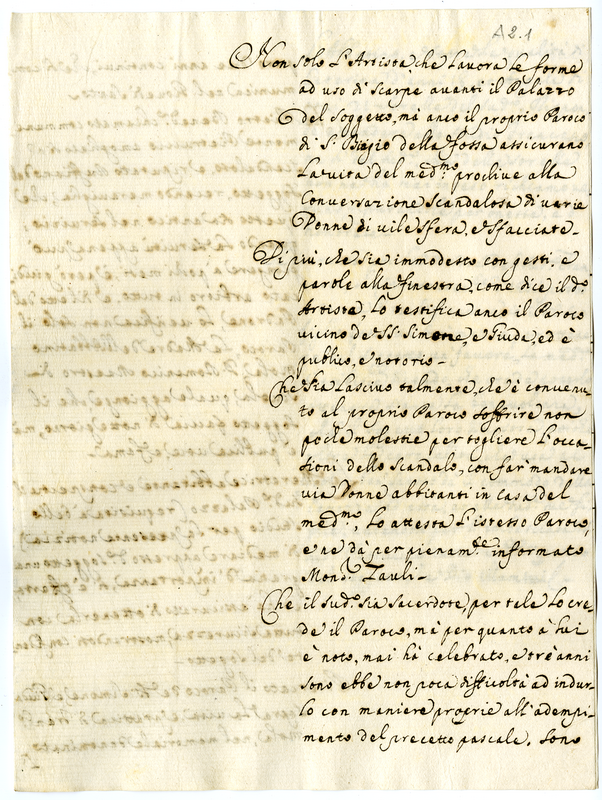 A2.1
Non solo l'Artista, che lavora le forme
ad uso di scarpe avanti il Palazzo
del soggetto, mà anco il proprio Paroco
di S. Biagio della fossa assicurano
la vita del med.mo proclive alla
conversazione scandalosa di varie
Donne di vile sfera, e sfacciate-
Di più, che sia immodesto con gesti, e
parole alla finestra, come dice il d.o
Artista, lo testifica anco il Paroco
vicino de SS. Simone, e Giuda, ed è
publico, e notorio-
Che sia lascivo talmente, che è convenu-
to al proprio Paroco soffrire non
poche molestie per togliere l'occa-
sioni dello scandalo, con far' mandare
via Donne abbitanti in casa del
med.mo, lo attesta l'istesso Paroco,
e ne dà per pienam.te informato
Mons.r Zauli-
Che il sud.o sia sacerdote, per tale lo cre-
de il Paroco, mà per quanto à lui
è noto, mai hà celebrato, e trè anni
sono ebbe non poca difficoltà ad indur-
lo con maniere proprie all'adempi-
mento del precetto pascale. Sono